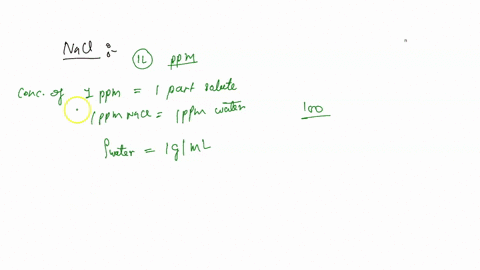 NaCl :-
1L ppm
Conc. of 1 ppm = 1 part solute
1 ppm NaCl = 1 ppm water
100
ρwater = 1g/mL